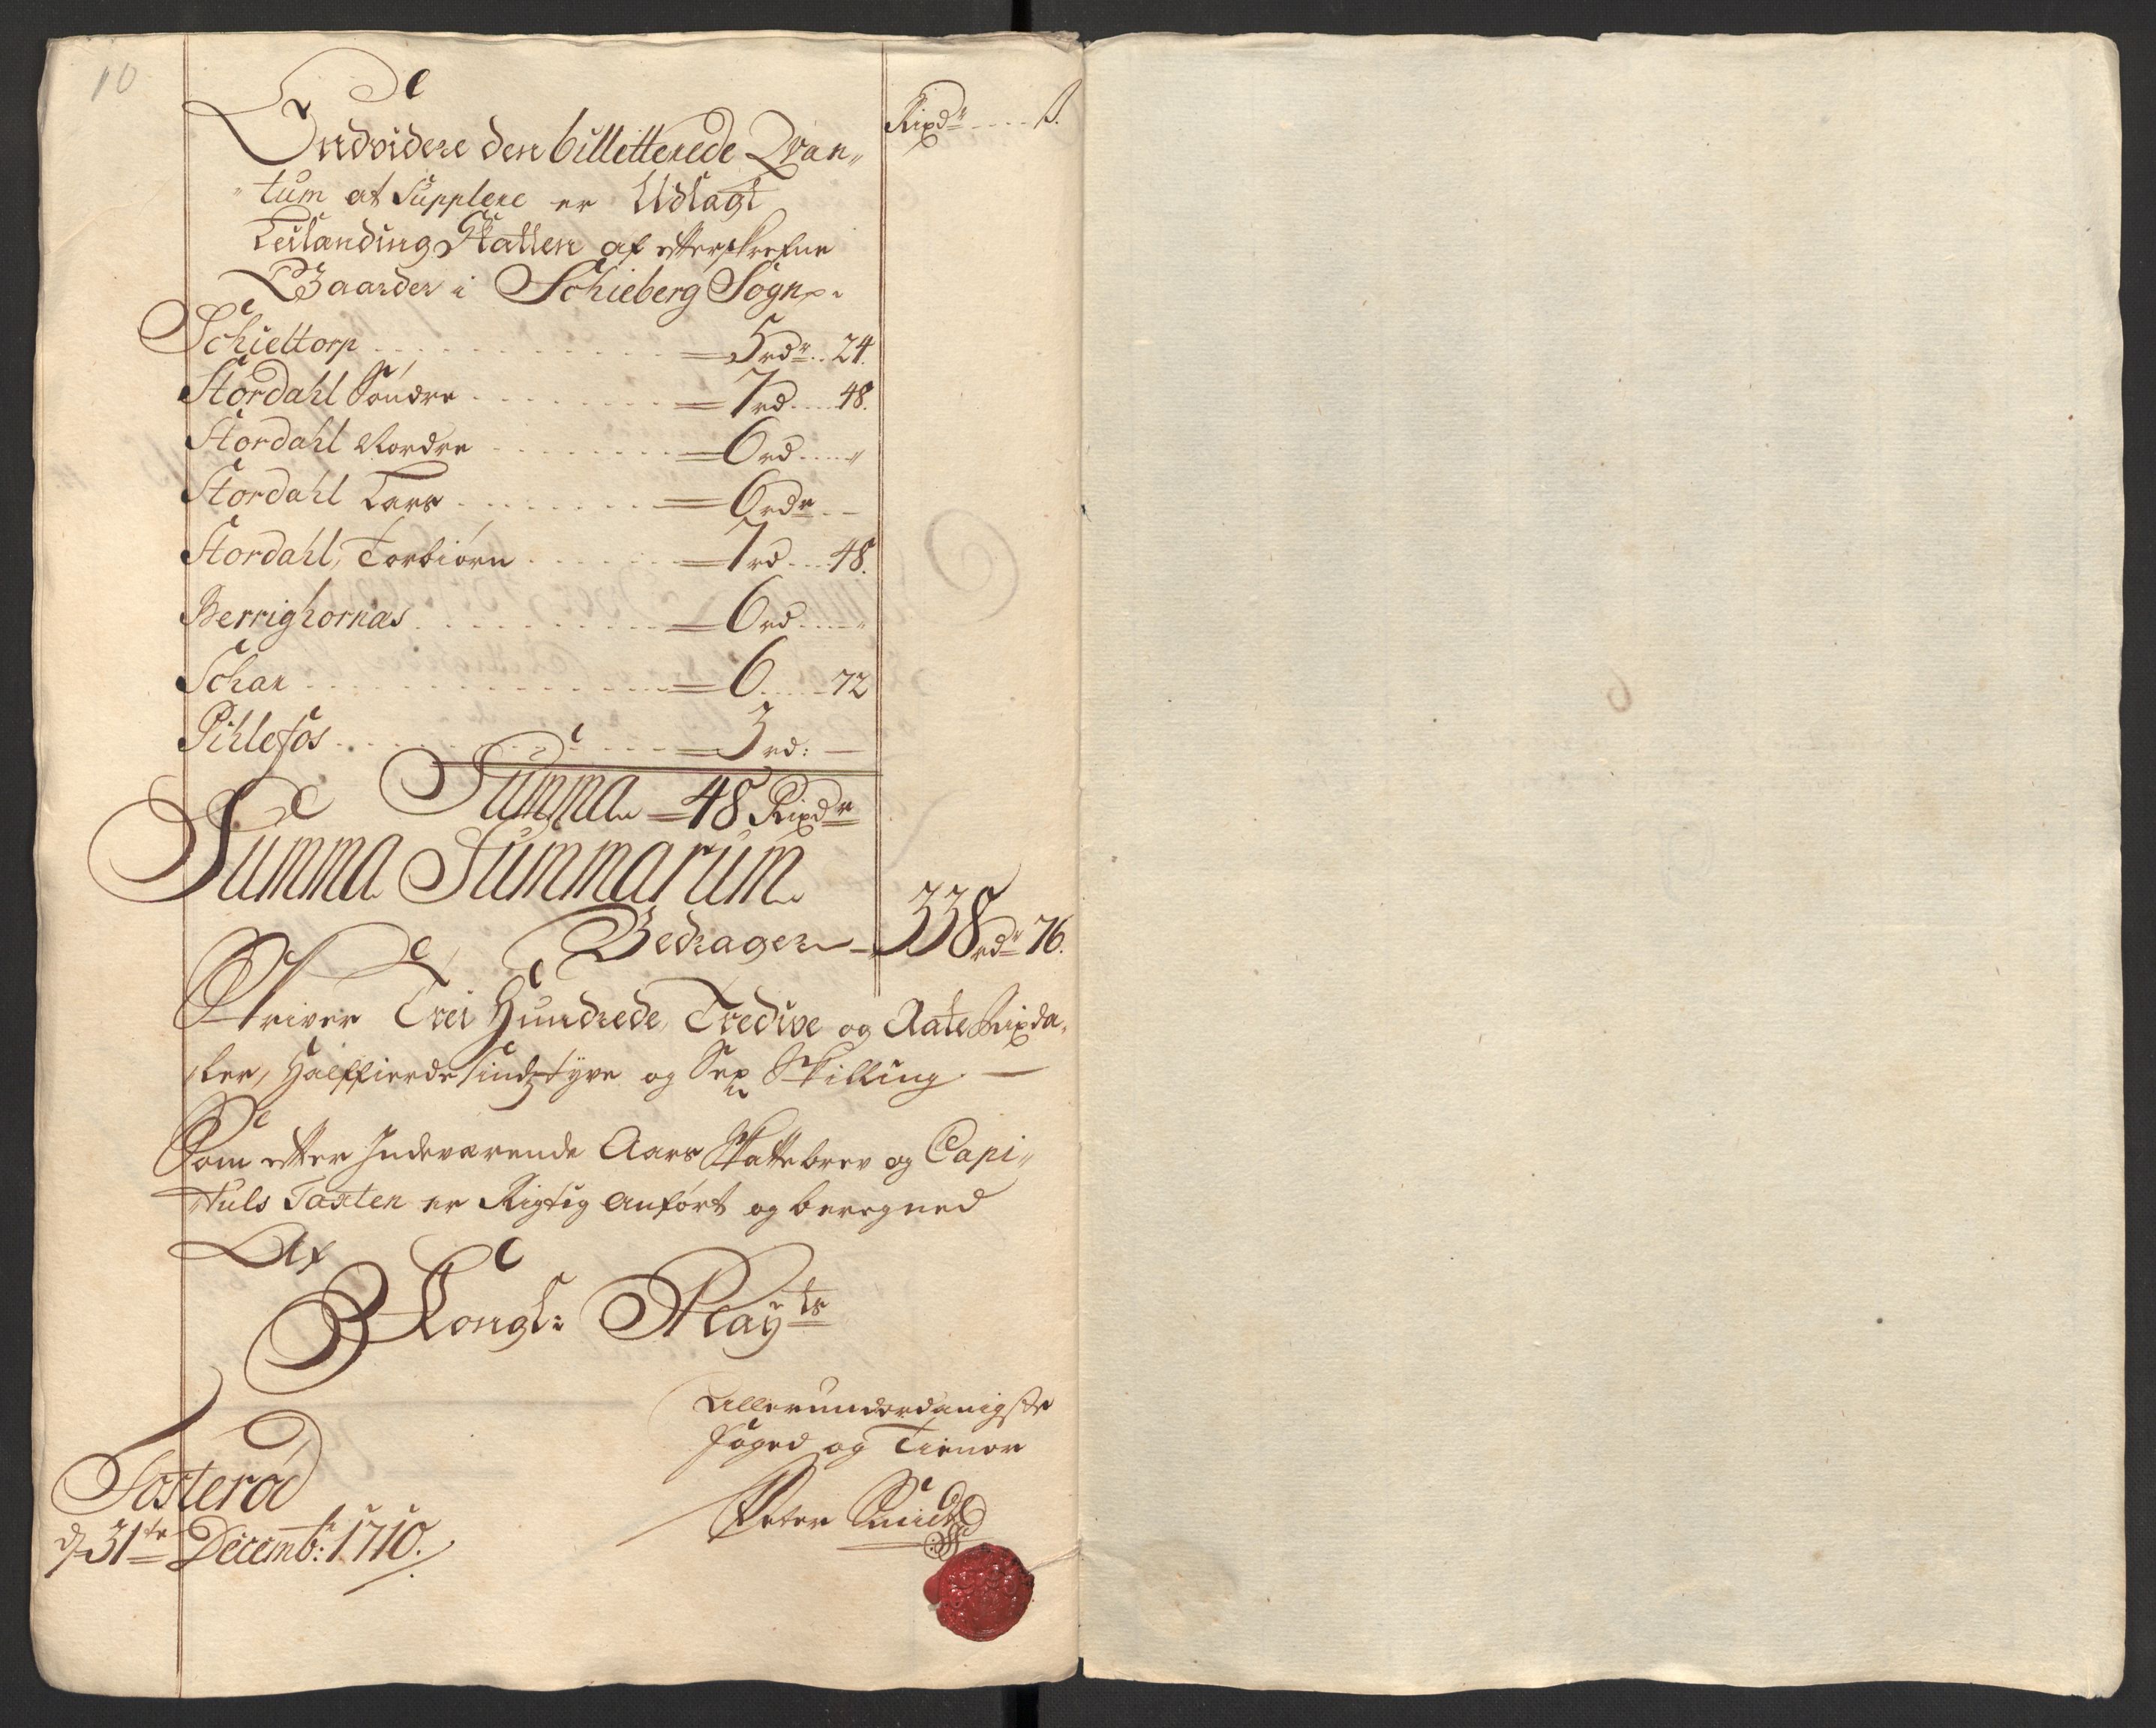 10
Rixdr ß.
Endvidere den billitterede Qvan„
„tum at Supplere er Udlagt
Leilandings Skatten af efterskrefne
Gaarder i Schieberg Sogn
Schiettorp = 5rdr 24.
Stordahl Søndre = 7rd 48.
Stordahl Nordre = 6rd „
Stordahl Lars = 6rdr —
Stordahl, Torbiørn = 7rd 48.
Berrighornas = 6rd „
Schar = 6 72
Pihlefos = 3rd: —
Summa = 48 Rixdr
Summa Summarum
Bedrager 338rdr 76.
Skriver Trei Hundrede, Tredive og Aate Rixda„
ler, Halffierdesindztyve og Sex Skilling. —
Som efter Indeværende Aars Skattebrev og Capi„
tuls Taxten er Rigtig anført og beregned
Af
Kongl: Mayts
Allerunderdanigste
foged og Tienner
Peter Smidt
Fosterød
d 31te Decembr: 1710.